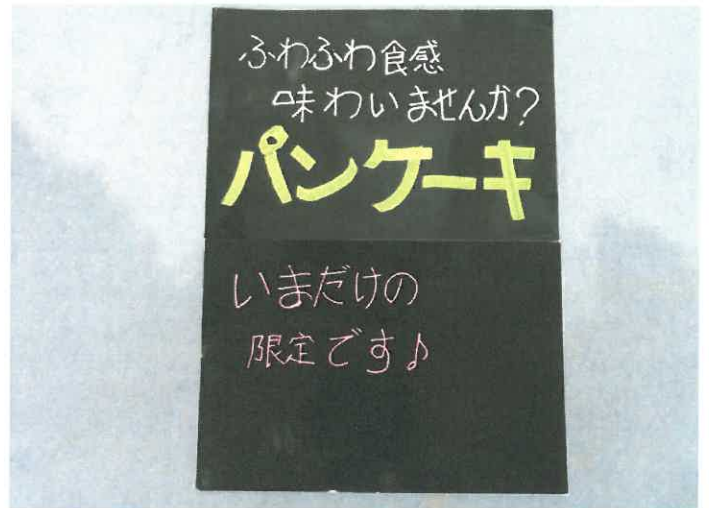 ふわふわ食感
味わいませんか?
パンケーキ
いまだけの
限定です♪